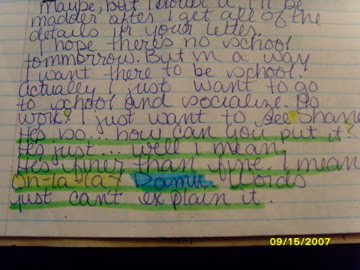 Maybe, but I doubt it. I'll be
madder after I get all of the
details in your letter.
I hope theres no school
tommorrow. But in a way
I want there to be school.
actually I just want to go
to school and socialize. No
work! I just want to see Shane
Hes so... how can you put it?
Hes just... well I mean,
He's finer than fine. I mean
Oh-la-la? Damn. Words
just can't explain it.
09/15/2007